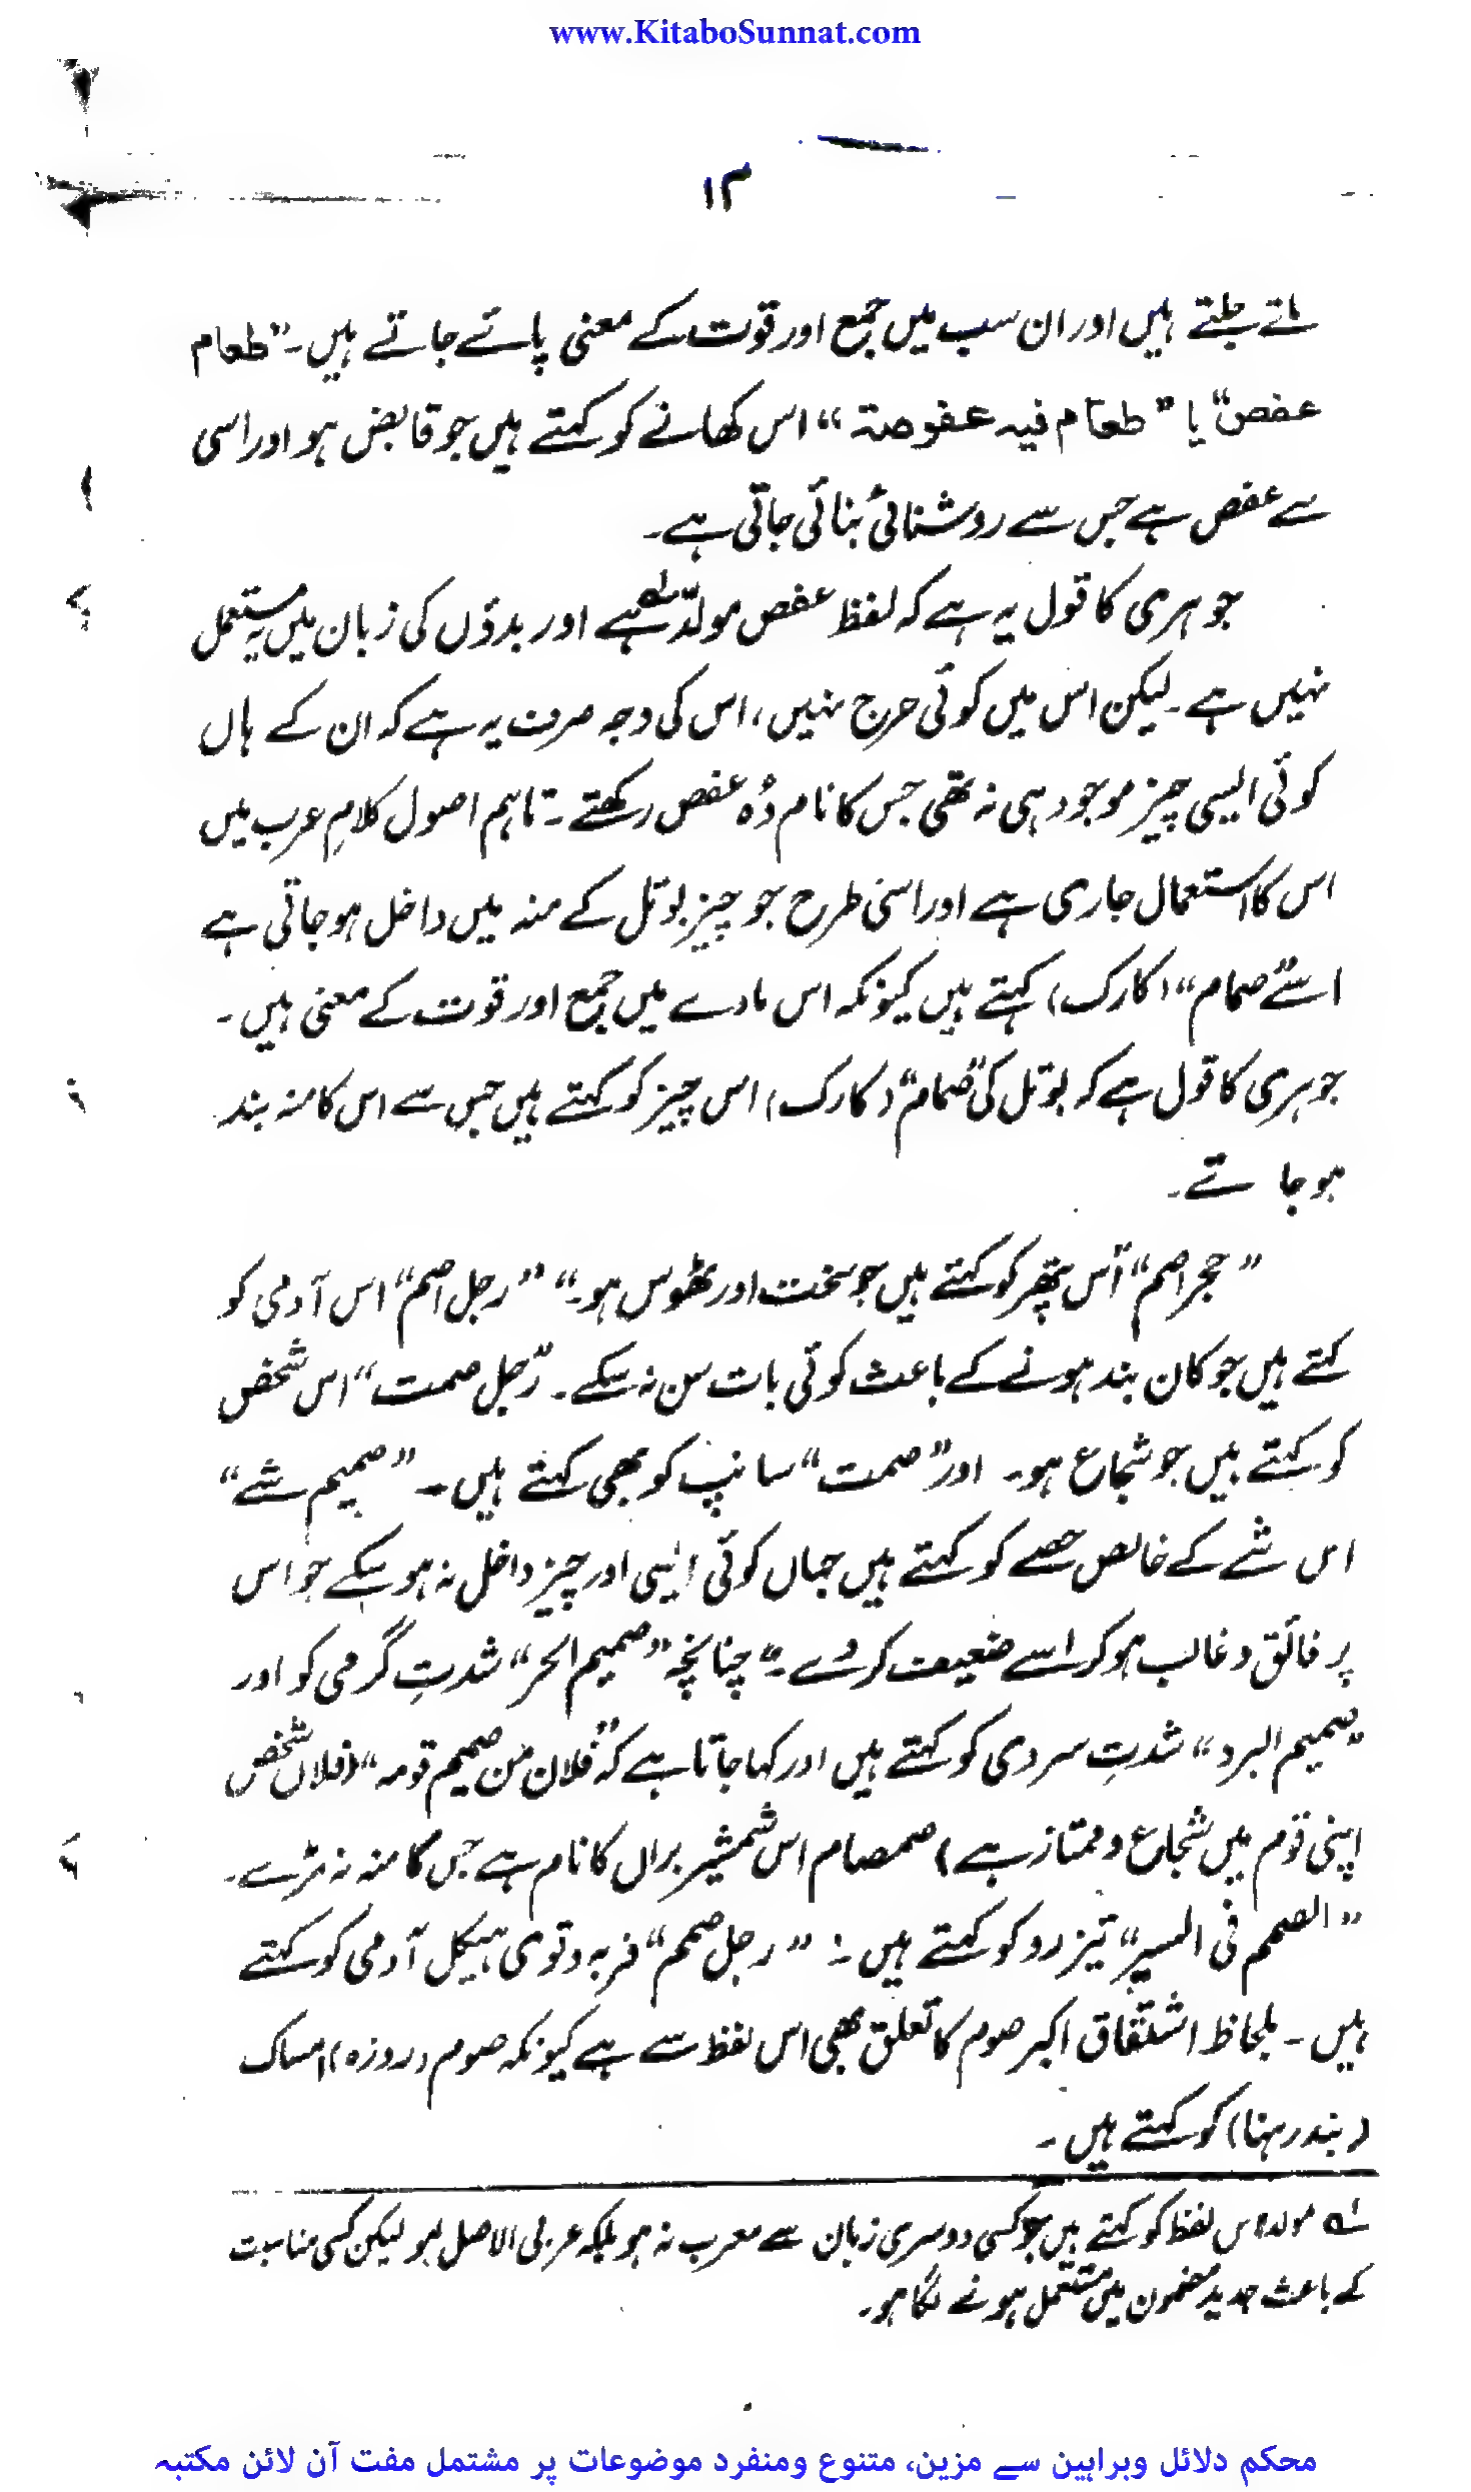 www.KitaboSunnat.com
۱۳
ملتے جلتے ہیں اور ان سب میں جمع اور قوت کے معنی پائے جاتے ہیں۔ "طعام
عفص" یا "طعام فیہ عفوصة" اس کھانے کو کہتے ہیں جو قابض ہو اور اسی
سے عفص ہے جس سے روشنائی بنائی جاتی ہے۔
جوہری کا قول یہ ہے کہ لفظ عفص مولدؔ لہ ہے اور بدوؤں کی زبان میں یہ مستعمل
نہیں ہے۔ لیکن اس میں کوئی حرج نہیں، اس کی وجہ صرف یہ ہے کہ ان کے ہاں
کوئی ایسی چیز موجود ہی نہ تھی جس کا نام وُہ عفص رکھتے۔ تاہم اصول کلامِ عرب میں
اس کا استعمال جاری ہے اور اسی طرح جو چیز بوتل کے منہ میں داخل ہو جاتی ہے
اسے "صمام" (کارک) کہتے ہیں کیونکہ اس مادے میں جمع اور قوت کے معنی ہیں۔
جوہری کا قول ہے کہ بوتل کی "صمام" (کارک) اس چیز کو کہتے ہیں جس سے اس کا منہ بند
ہو جائے۔
"حجر اصم" اُس پتھر کو کہتے ہیں جو سخت اور ٹھوس ہو۔" "رجل اصم" اس آدمی کو
کہتے ہیں جو کان بند ہونے کے باعث کوئی بات سن نہ سکے۔ "رجل صمت" اس شخص
کو کہتے ہیں جو شجاع ہو۔ اور "صمت" سانپ کو بھی کہتے ہیں۔ "صمیم شے"
اس شے کے خالص حصے کو کہتے ہیں جہاں کوئی ایسی اور چیز داخل نہ ہو سکے جو اس
پر فائق و غالب ہو کر اسے ضعیف کر دے۔" چنانچہ "صمیم الحر" شدتِ گرمی کو اور
"صمیم البرد" شدتِ سردی کو کہتے ہیں اور کہا جاتا ہے کہ "فلان من صمیم قومہ" (فلاں شخص
اپنی قوم میں شجاع و ممتاز ہے) صمصام اس شمشیر براں کا نام ہے جس کا منہ نہ مڑے۔
"الصمم فی السیر" تیز رو کو کہتے ہیں: "رجل صمم" فربہ و قوی ہیکل آدمی کو کہتے
ہیں۔ بلحاظ اشتقاق اکبر صوم کا تعلق بھی اس لفظ سے ہے کیونکہ صوم (روزہ) امساک
(بند رہنا) کو کہتے ہیں۔
لہ مولد اس لفظ کو کہتے ہیں جو کسی دوسری زبان سے معرب نہ ہو بلکہ عربی الاصل ہو لیکن کسی مناسبت
کے باعث جدید مضمون میں مستعمل ہونے لگا ہو۔
محکم دلائل وبراہین سے مزین، متنوع ومنفرد موضوعات پر مشتمل مفت آن لائن مکتبہ